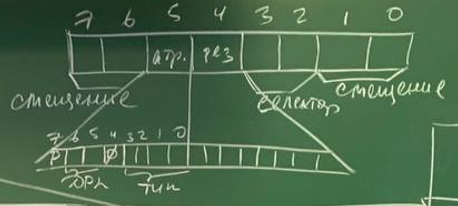 7 6 5 4 3 2 1 0
атр. рез
смещение селектор смещение
7 6 5 4 3 2 1 0
P 0
DPL тип